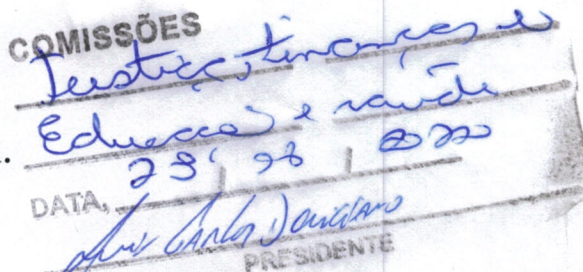 COMISSÕES
Justiça, finanças e
Educação e saúde
DATA,
Luis Carlos
PRESIDENTE